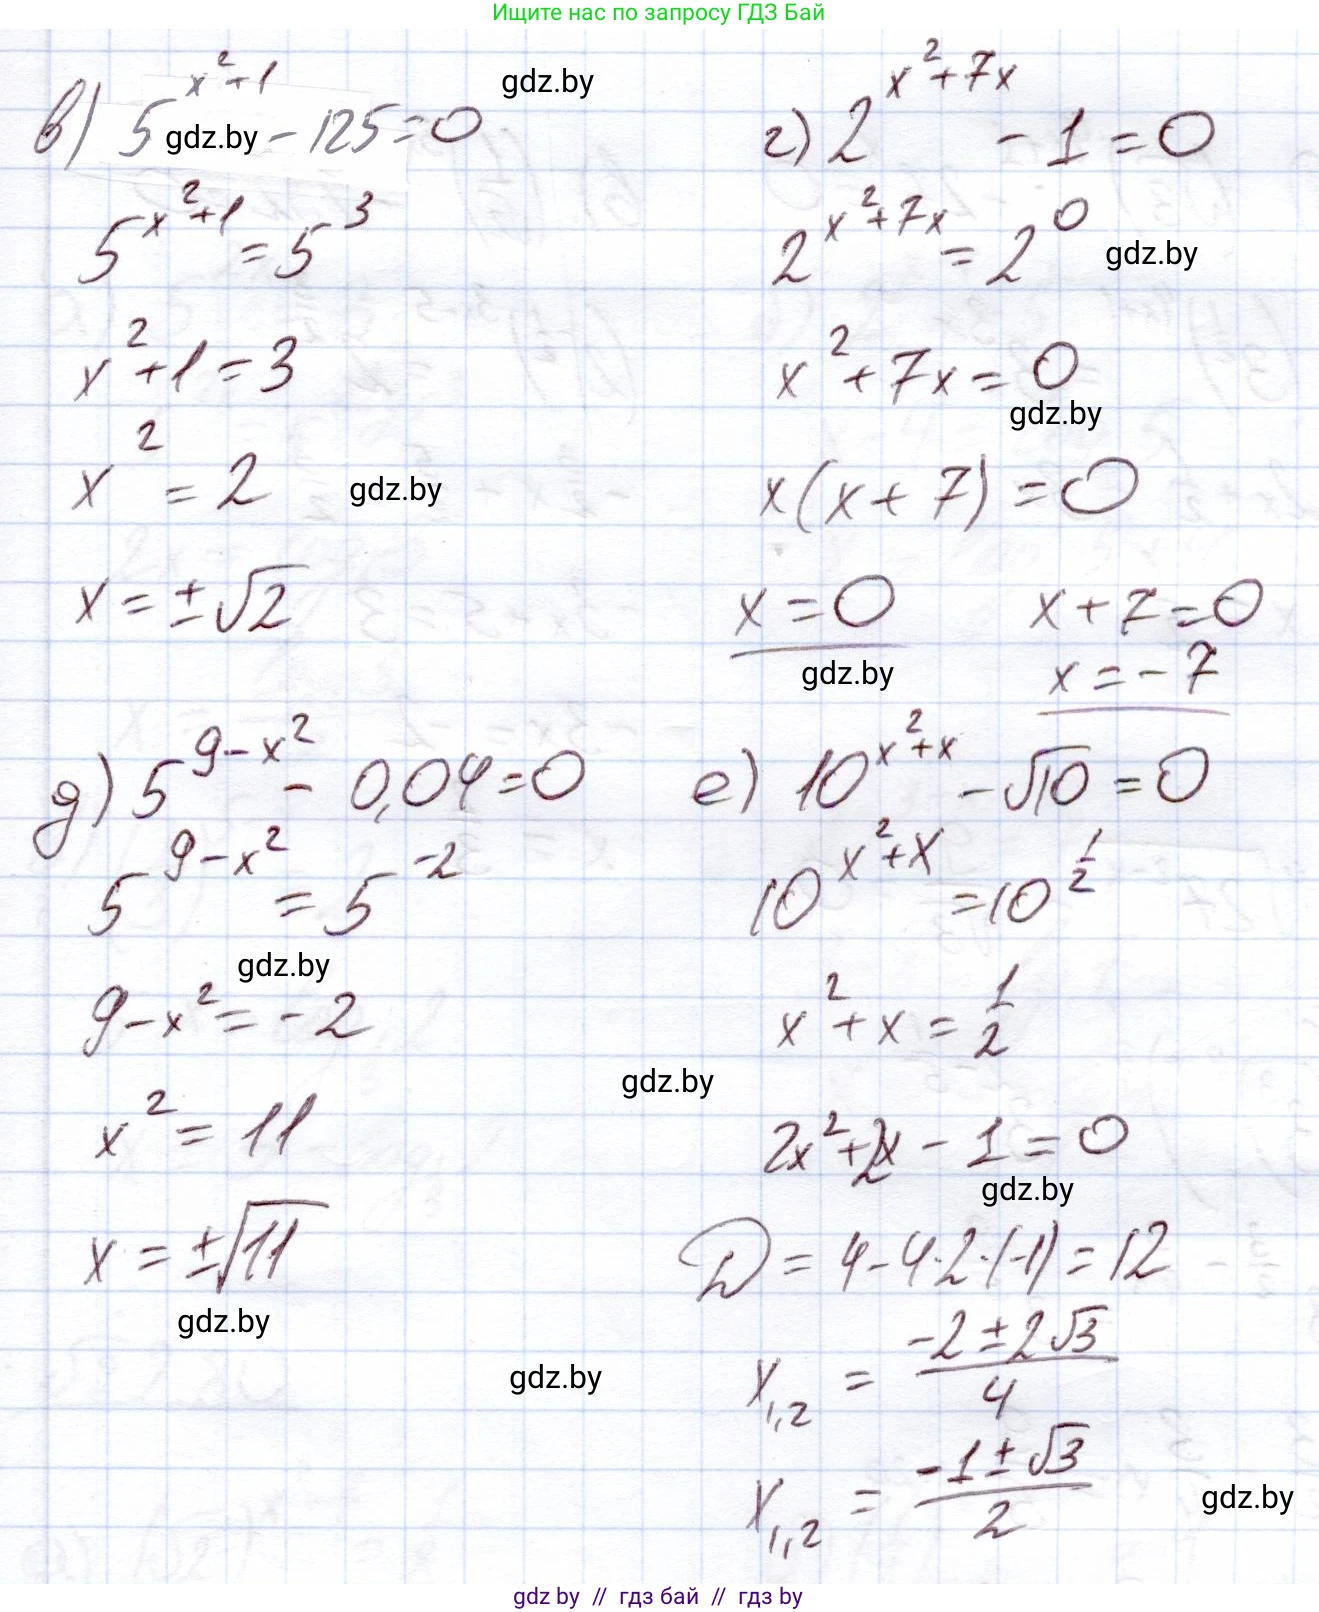 Ищите нас по запросу ГДЗ Бай
в) 5^(x²+1) - 125 = 0
gdz.by
gdz.by
5^(x²+1) = 5³
x² + 1 = 3
x² = 2
gdz.by
x = ±√2
г) 2^(x²+7x) - 1 = 0
2^(x²+7x) = 2⁰
gdz.by
x² + 7x = 0
gdz.by
x(x + 7) = 0
x = 0
x + 7 = 0
gdz.by
x = -7
д) 5^(9-x²) - 0,04 = 0
5^(9-x²) = 5^(-2)
gdz.by
9 - x² = -2
x² = 11
x = ±√11
gdz.by
е) 10^(x²+x) - √10 = 0
10^(x²+x) = 10^(1/2)
x² + x = 1/2
gdz.by
2x² + 2x - 1 = 0
gdz.by
D = 4 - 4·2·(-1) = 12
x₁,₂ = (-2 ± 2√3)/4
gdz.by
x₁,₂ = (-1 ± √3)/2
gdz.by
gdz by // гдз бай // гдз by